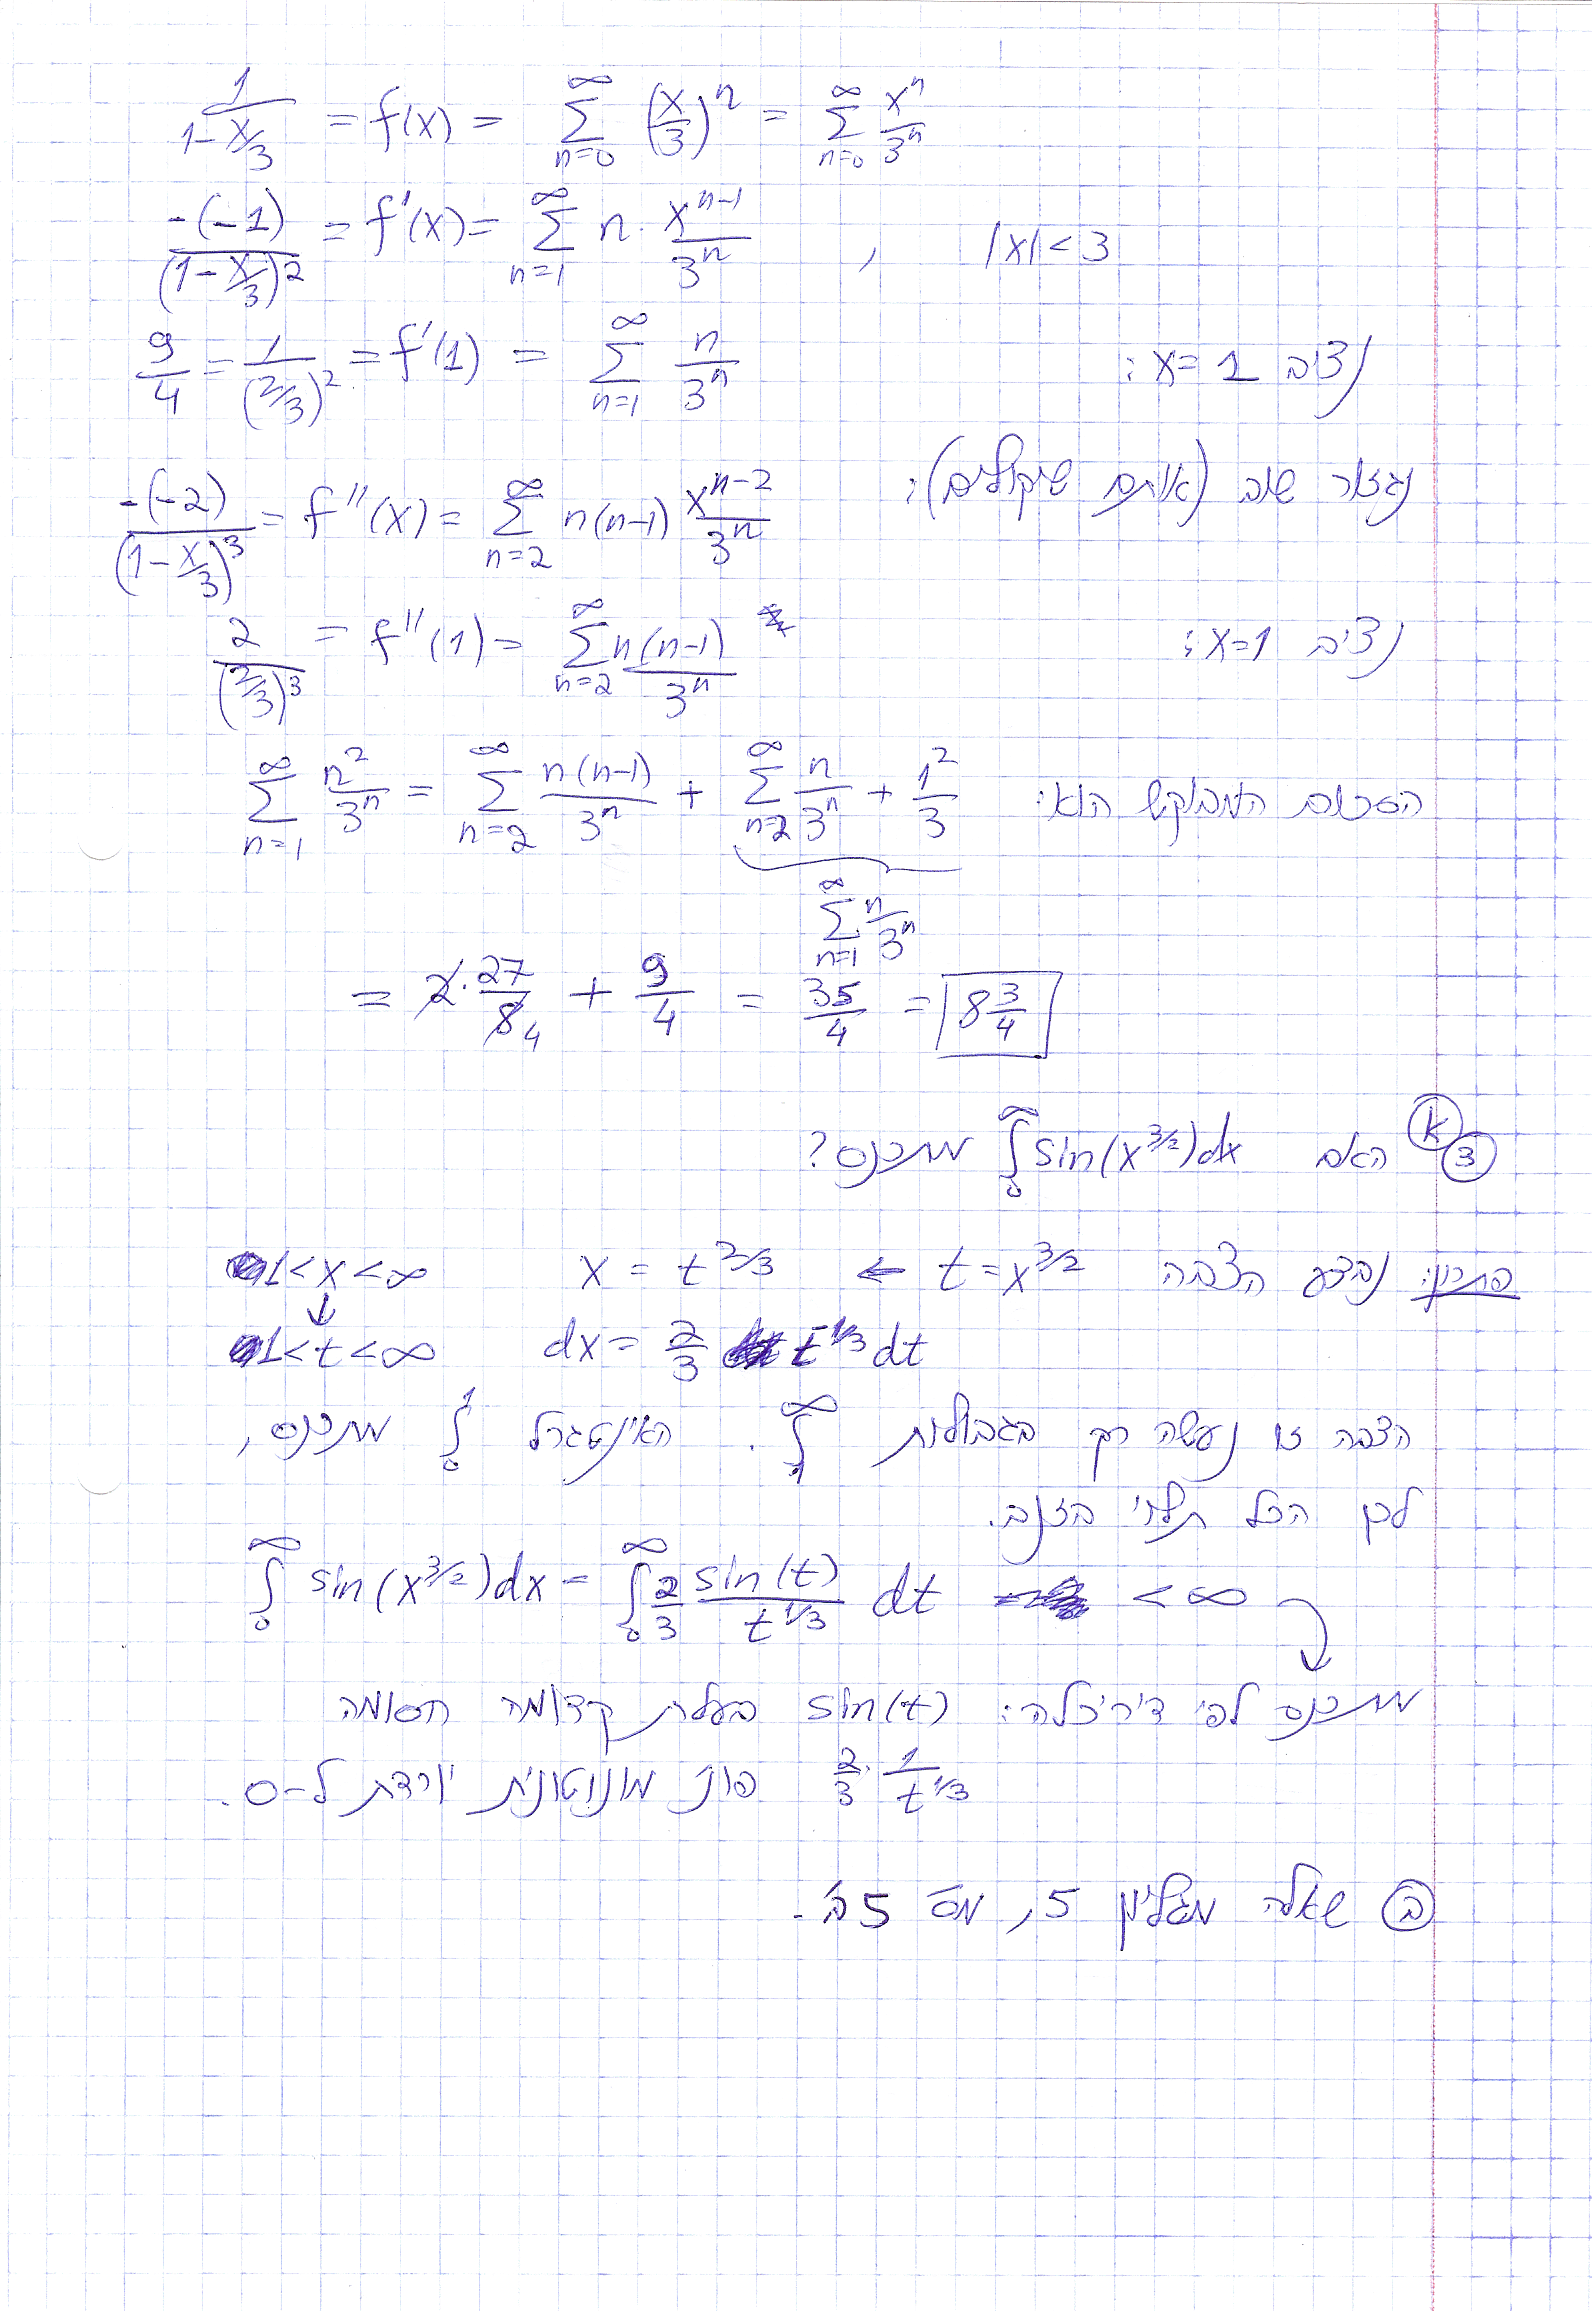 1/(1-x/3) = f(x) = ∑_{n=0}^{∞} (x/3)^n = ∑_{n=0}^{∞} x^n/3^n
-(-1)/(1-x/3)^2 = f'(x) = ∑_{n=1}^{∞} n · x^{n-1}/3^n , |x|<3
נציב x=1: 9/4 = 1/(2/3)^2 = f'(1) = ∑_{n=1}^{∞} n/3^n
נגזור שוב (אותם שיקולים): -(-2)/(1-x/3)^3 = f''(x) = ∑_{n=2}^{∞} n(n-1) x^{n-2}/3^n
נציב x=1: 2/(2/3)^3 = f''(1) = ∑_{n=2}^{∞} n(n-1)/3^n
הסכום המבוקש הוא: ∑_{n=1}^{∞} n^2/3^n = ∑_{n=2}^{∞} n(n-1)/3^n + ∑_{n=2}^{∞} n/3^n + 1^2/3
∑_{n=1}^{∞} n/3^n
= 2·27/8 4 + 9/4 = 35/4 = 8 3/4
3 א האם ∫_0^∞ sin(x^{3/2})dx מתכנס?
פתרון: נבצע הצבה t=x^{3/2} ← x = t^{2/3} 1<x<∞
↓
dx = 2/3 t^{-1/3} dt 1<t<∞
הצבה זו נעשה רק בגבולות ∫_1^∞. האינטגרל ∫_0^1 מתכנס,
לכן הכל תלוי בזנב.
∫_0^∞ sin(x^{3/2})dx = ∫_0^∞ 2/3 sin(t)/t^{1/3} dt < ∞
מתכנס לפי דיריכלה: sin(t) בעלת קדומה חסומה
2/3 · 1/t^{1/3} פונ' מונוטונית יורדת ל-0.
ב שאלה מגליון 5, מס' 5ב'.